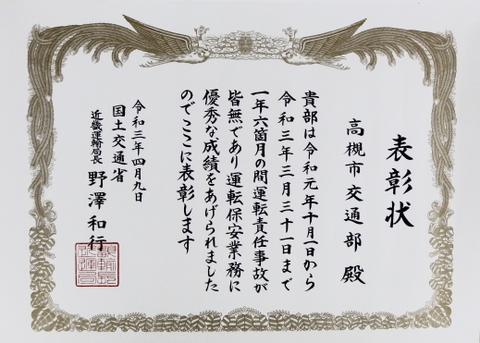 表彰状
高槻市交通部殿
貴部は令和元年十月一日から
令和三年三月三十一日まで
一年六箇月の間運転責任事故が
皆無であり運転保安業務に
優秀な成績をあげられました
のでここに表彰します
令和三年四月九日
国土交通省
近畿運輸局長 野澤和行